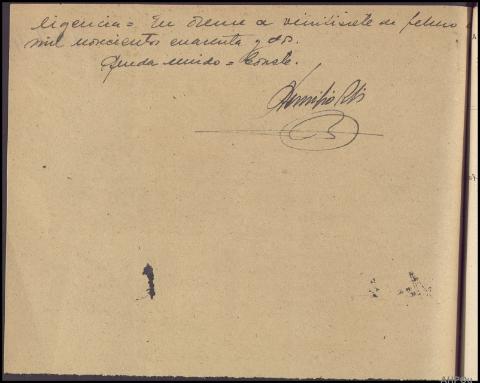 ligencia = En Orense a veintisiete de febrero
mil novecientos cuarenta y dos.
Queda unido = Conste.